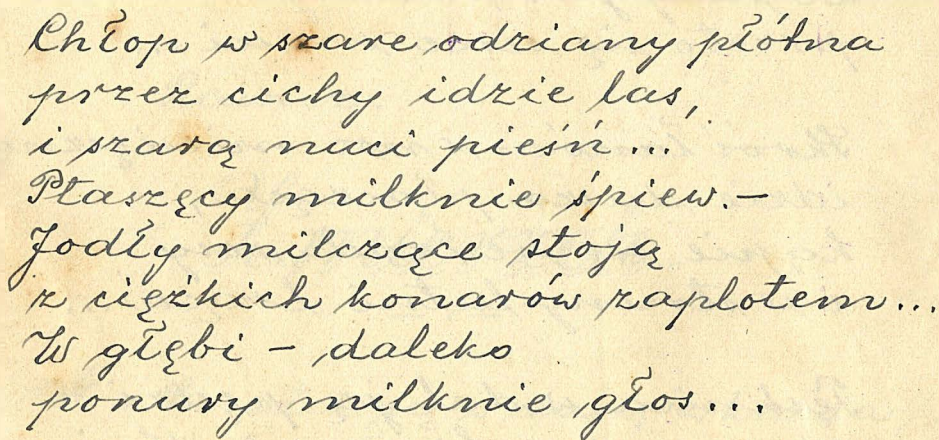 Chłop w szare odziany płótna
przez cichy idzie las,
i szarą nuci pieśń...
Ptaszęcy milknie śpiew.—
Jodły milczące stoją
z ciężkich konarów zaplotem...
W głębi – daleko
ponury milknie głos...